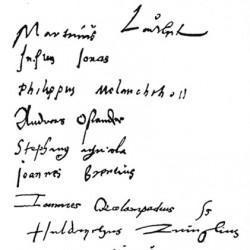 Martinus Luther
Justus Jonas
Philippus Melanchtho
Andreas Osiander
Stephanus Agricola
Joannes Brentius
Joannes Oecolampadius ss
Huldrychus Zuinglius